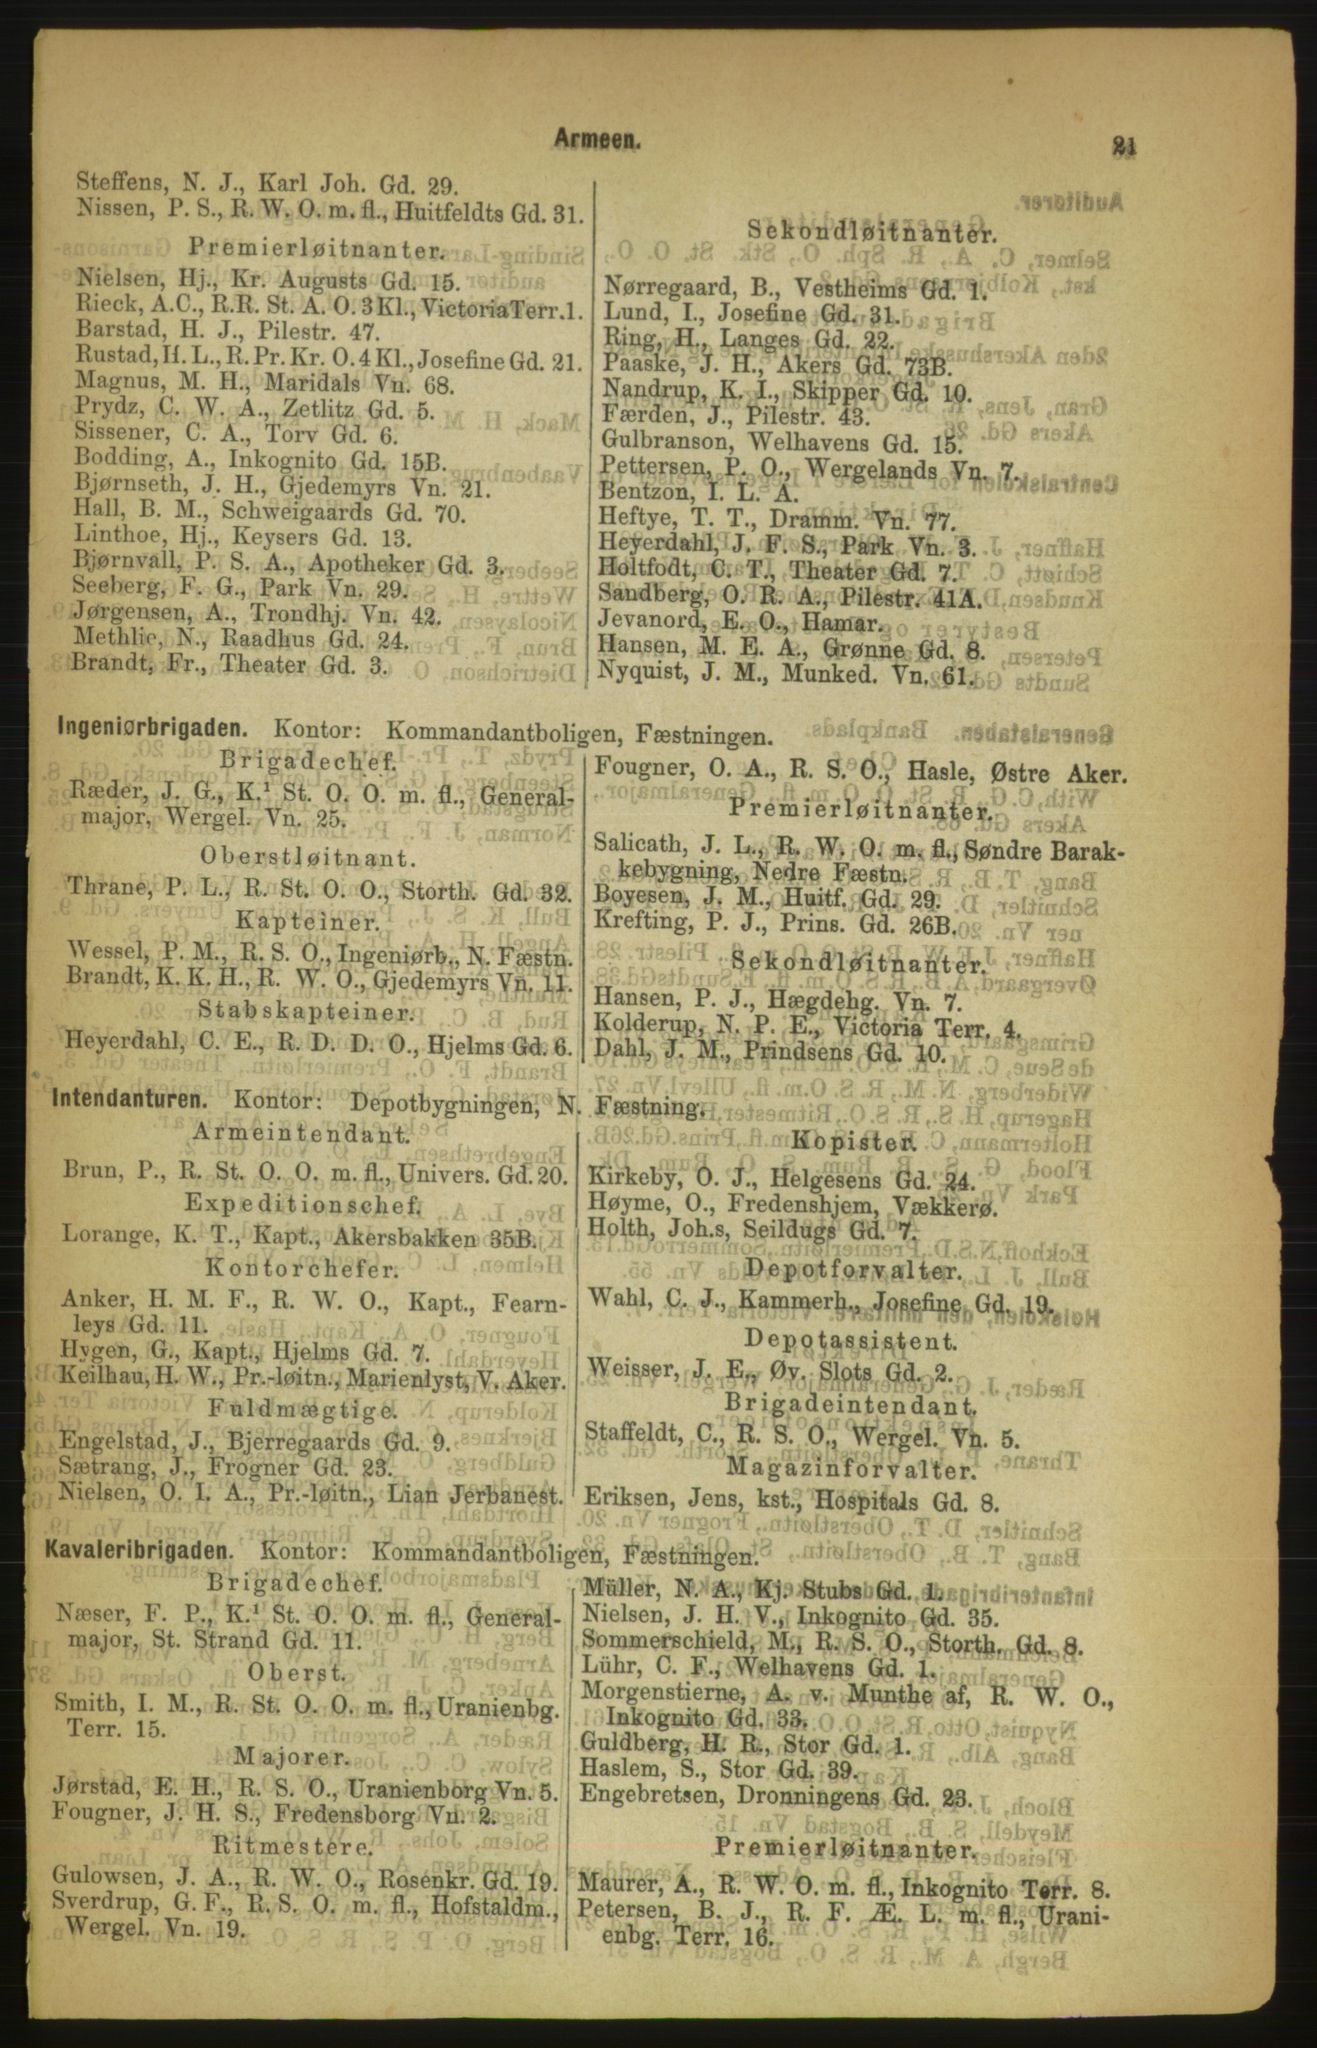 Armeen.
21
Steffens, N. J., Karl Joh. Gd. 29.
Nissen, P. S., R. W. O. m. fl., Huitfeldts Gd. 31.
Premierløitnanter.
Nielsen, Hj., Kr. Augusts Gd. 15.
Rieck, A.C., R.R. St. A. O. 3 Kl., Victoria Terr. 1.
Barstad, H. J., Pilestr. 47.
Rustad, H. L., R. Pr. Kr. O. 4 Kl., Josefine Gd. 21.
Magnus, M. H., Maridals Vn. 68.
Prydz, C. W. A., Zetlitz Gd. 5.
Sissener, C. A., Torv Gd. 6.
Bodding, A., Inkognito Gd. 15B.
Bjørnseth, J. H., Gjedemyrs Vn. 21.
Hall, B. M., Schweigaards Gd. 70.
Linthoe, Hj., Keysers Gd. 13.
Bjørnvall, P. S. A., Apotheker Gd. 3.
Seeberg, F. G., Park Vn. 29.
Jørgensen, A., Trondhj. Vn. 42.
Methlie, N., Raadhus Gd. 24.
Brandt, Fr., Theater Gd. 3.
Sekondløitnanter.
Nørregaard, B., Vestheims Gd. 1.
Lund, I., Josefine Gd. 31.
Ring, H., Langes Gd. 22.
Paaske, J. H., Akers Gd. 73B.
Nandrup, K. I., Skipper Gd. 10.
Færden, J., Pilestr. 43.
Gulbranson, Welhavens Gd. 15.
Pettersen, P. O., Wergelands Vn. 7.
Bentzon, I. L. A.
Heftye, T. T., Dramm. Vn. 77.
Heyerdahl, J. F. S., Park Vn. 3.
Holtfodt, C. T., Theater Gd. 7.
Sandberg, O. R. A., Pilestr. 41A.
Jevanord, E. O., Hamar.
Hansen, M. E. A., Grønne Gd. 8.
Nyquist, J. M., Munked. Vn. 61.
Ingeniørbrigaden. Kontor: Kommandantboligen, Fæstningen.
Brigadechef.
Ræder, J. G., K.¹ St. O. O. m. fl., General-
major, Wergel. Vn. 25.
Oberstløitnant.
Thrane, P. L., R. St. O. O., Storth. Gd. 32.
Kapteiner.
Wessel, P. M., R. S. O., Ingeniørb., N. Fæstn.
Brandt, K. K. H., R. W. O., Gjedemyrs Vn. 11.
Stabskapteiner.
Heyerdahl, C. E., R. D. D. O., Hjelms Gd. 6.
Fougner, O. A., R. S. O., Hasle, Østre Aker.
Premierløitnanter.
Salicath, J. L., R. W. O. m. fl., Søndre Barak-
kebygning, Nedre Fæstn.
Boyesen, J. M., Huitf. Gd. 29.
Krefting, P. J., Prins. Gd. 26B.
Sekondløitnanter.
Hansen, P. J., Hægdehg. Vn. 7.
Kolderup, N. P. E., Victoria Terr. 4.
Dahl, J. M., Prindsens Gd. 10.
Intendanturen. Kontor: Depotbygningen, N. Fæstning.
Armeintendant.
Brun, P., R. St. O. O. m. fl., Univers. Gd. 20.
Expeditionschef.
Lorange, K. T., Kapt., Akersbakken 35B.
Kontorchefer.
Anker, H. M. F., R. W. O., Kapt., Fearn-
leys Gd. 11.
Hygen, G., Kapt., Hjelms Gd. 7.
Keilhau, H. W., Pr.-løitn., Marienlyst, V. Aker.
Fuldmægtige.
Engelstad, J., Bjerregaards Gd. 9.
Sætrang, J., Frogner Gd. 23.
Nielsen, O. I. A., Pr.-løitn., Lian Jerbanest.
Kopister.
Kirkeby, O. J., Helgesens Gd. 24.
Høyme, O., Fredenshjem, Vækkerø.
Holth, Joh.s, Seildugs Gd. 7.
Depotforvalter.
Wahl, C. J., Kammerh., Josefine Gd. 19.
Depotassistent.
Weisser, J. E., Øv. Slots Gd. 2.
Brigadeintendant.
Staffeldt, C., R. S. O., Wergel. Vn. 5.
Magazinforvalter.
Eriksen, Jens, kst., Hospitals Gd. 8.
Kavaleribrigaden. Kontor: Kommandantboligen, Fæstningen.
Brigadechef.
Næser, F. P., K.¹ St. O. O. m. fl., General-
major, St. Strand Gd. 11.
Oberst.
Smith, I. M., R. St. O. O. m. fl., Uranienbg.
Terr. 15.
Majorer.
Jørstad, E. H., R. S. O., Uranienborg Vn. 5.
Fougner, J. H. S., Fredensborg Vn. 2.
Ritmestere.
Gulowsen, J. A., R. W. O., Rosenkr. Gd. 19.
Sverdrup, G. F., R. S. O. m. fl., Hofstaldm.,
Wergel. Vn. 19.
Müller, N. A., Kj. Stubs Gd. 1.
Nielsen, J. H. V., Inkognito Gd. 35.
Sommerschield, M., R. S. O., Storth. Gd. 8.
Lühr, C. F., Welhavens Gd. 1.
Morgenstierne, A. v. Munthe af, R. W. O.,
Inkognito Gd. 33.
Guldberg, H. R., Stor Gd. 1.
Haslem, S., Stor Gd. 39.
Engebretsen, Dronningens Gd. 23.
Premierløitnanter.
Maurer, A., R. W. O. m. fl., Inkognito Terr. 8.
Petersen, B. J., R. F. Æ. L. m. fl., Urani-
enbg. Terr. 16.